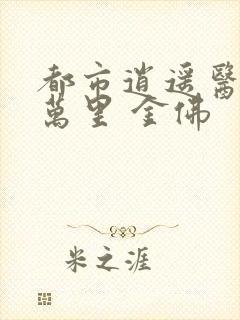 都市逍遥醫
萬里 金佛
米之涯